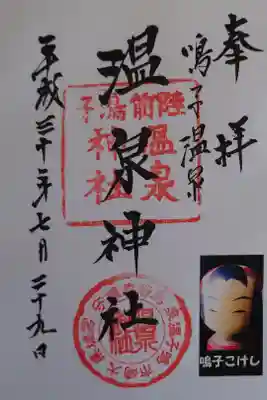 奉拝
鳴子温泉
温泉神社
陸前鳴子
温泉
神社
平成三十年七月二十九日
鳴子こけし